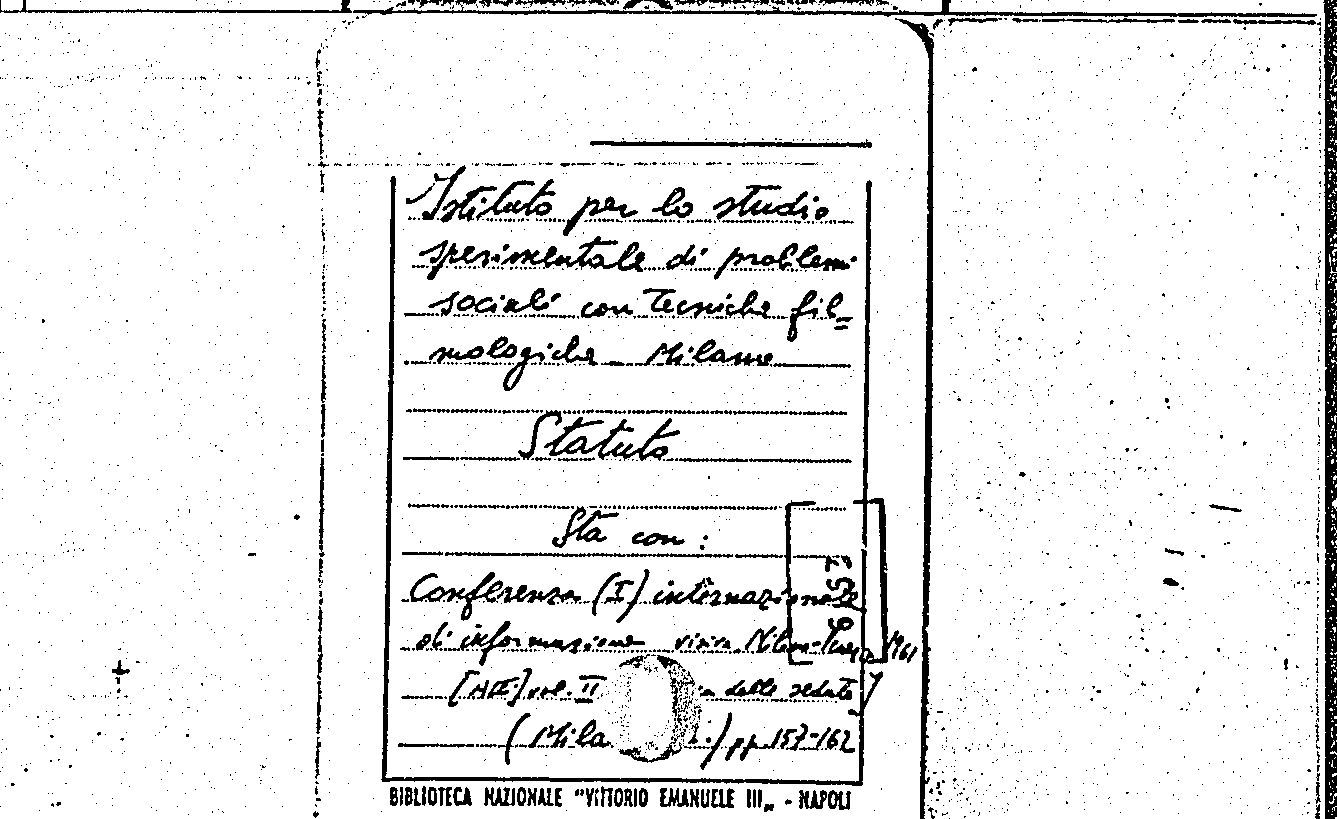 Istituto per lo studio
sperimentale di problemi
sociali con tecniche fil=
mologiche - Milano
Statuto
Sta con:
Conferenza (I) internazionale
di informazione visiva. Milano 1961
vol. II delle sedute]
(Mila ) pp. 157-162
BIBLIOTECA NAZIONALE "VITTORIO EMANUELE III„ - NAPOLI